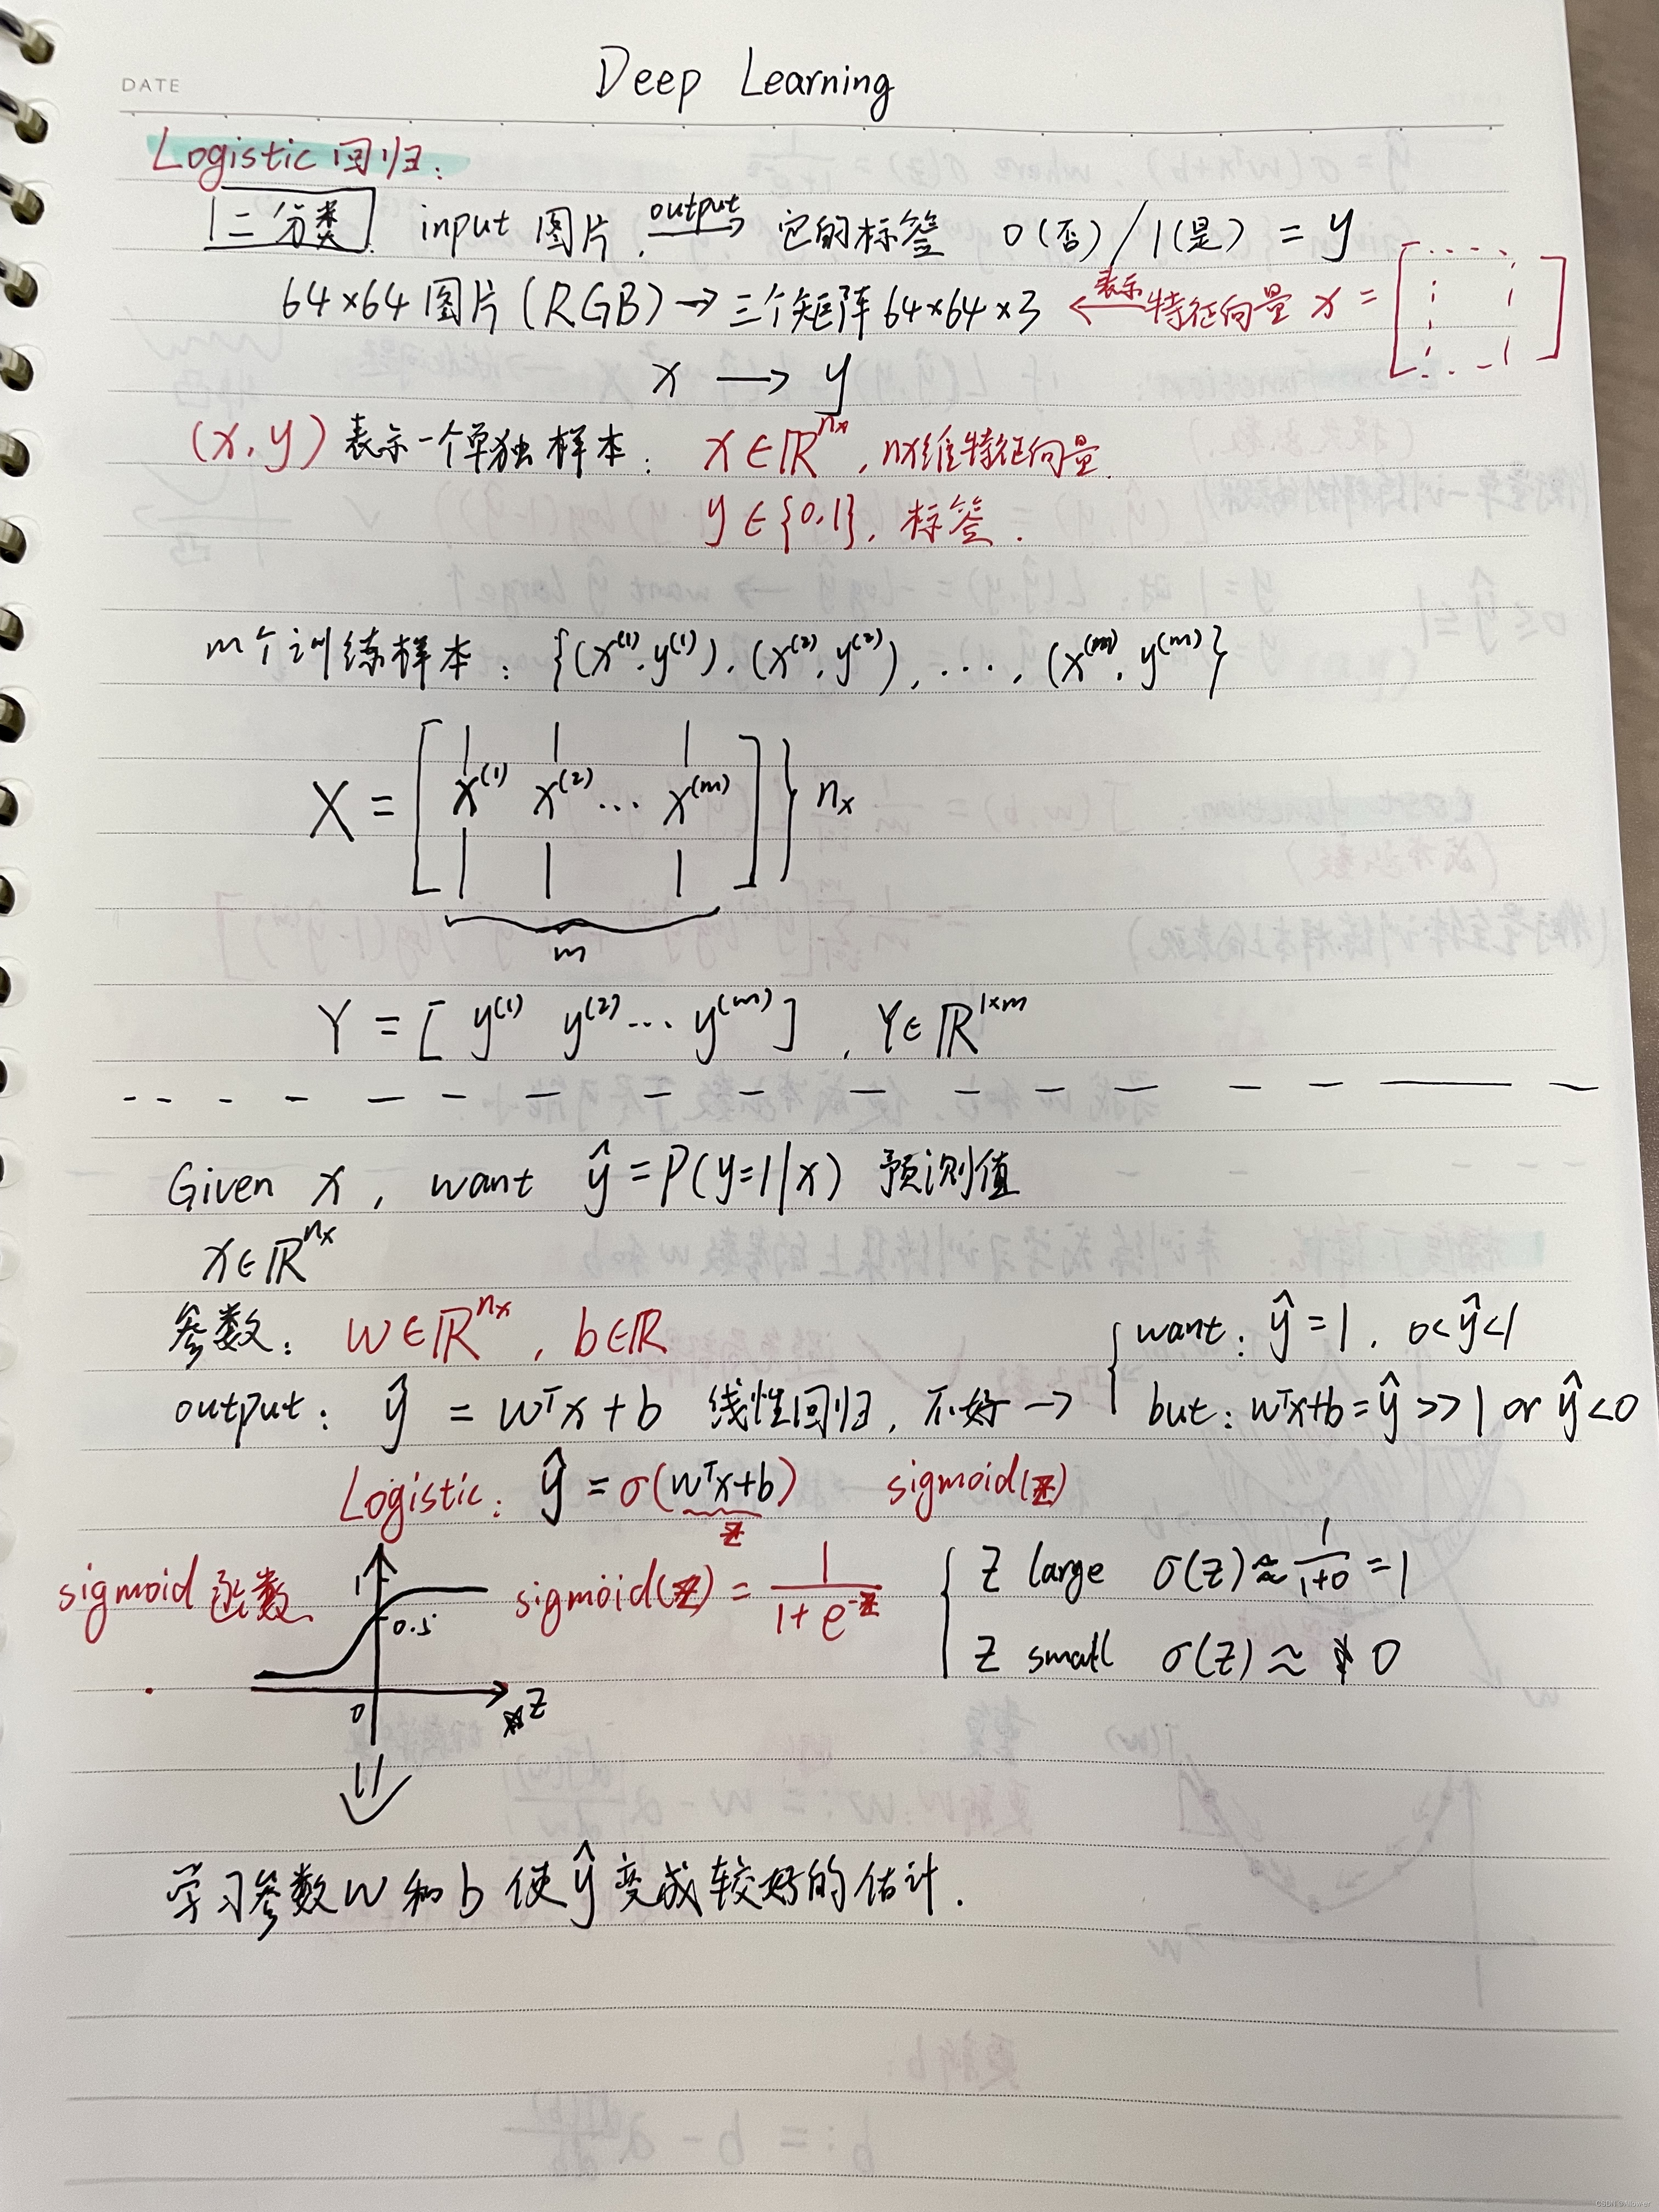 DATE
Deep Learning
Logistic 回归:
二分类. input 图片, output→ 它的标签 0(否)/1(是) = y
64×64图片(RGB)→三个矩阵64×64×3 ←表示 特征向量 x = [ ]
x → y
(x,y) 表示一个单独样本: x∈ℝ^{nx}, nx维特征向量.
y∈{0,1}, 标签.
m个训练样本: {(x^{(1)},y^{(1)}),(x^{(2)},y^{(2)}),...,(x^{(m)},y^{(m)})}
X = [x^{(1)} x^{(2)} ... x^{(m)}] } n_x
m
Y = [ y^{(1)} y^{(2)} ... y^{(m)} ] , Y∈ℝ^{1×m}
Given x, want ŷ = P(y=1|x) 预测值
x∈ℝ^{n_x}
参数: w∈ℝ^{n_x}, b∈ℝ
want: ŷ=1, 0<ŷ<1
output: ŷ = w^T x + b 线性回归, 不好 → but: w^T x+b = ŷ >> 1 or ŷ<0
Logistic: ŷ = σ(w^T x+b) sigmoid(z)
z
sigmoid 函数 1 0.5 0 z sigmoid(z) = 1/(1+e^{-z})
z large σ(z) ≈ 1/(1+0) = 1
z small σ(z) ≈ 0
学习参数w和b使ŷ变成较好的估计.